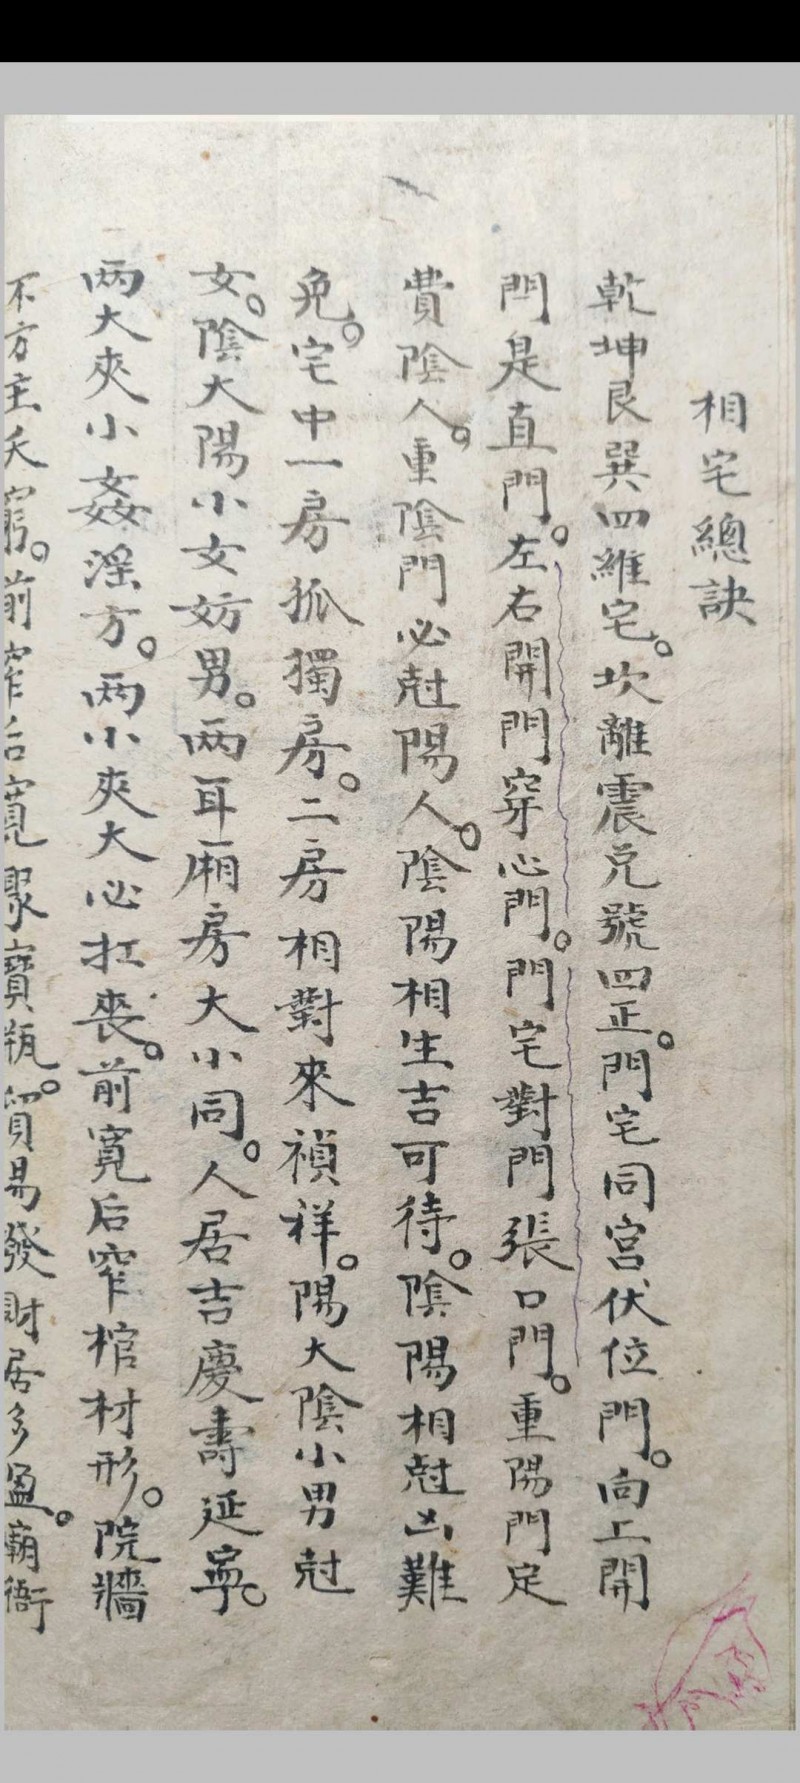 相宅總訣
乾坤艮巽四維宅。坎離震兑號四正。門宅同宫伏位門。向上開
門是直門。左右開門穿心門。門宅對門張口門。重陽門定
費陰人。重陰門必尅陽人。陰陽相生吉可待。陰陽相尅凶難
免。宅中一房孤獨房。二房相對來禎祥。陽大陰小男尅
女。陰大陽小女妨男。兩耳厢房大小同。人居吉慶壽延寧。
两大夾小姦淫方。两小夾大必扛喪。前寬后窄棺材形。院牆
不方主夭窮。前窄后寬聚寶瓶。貿易發財居多盈。廟衙